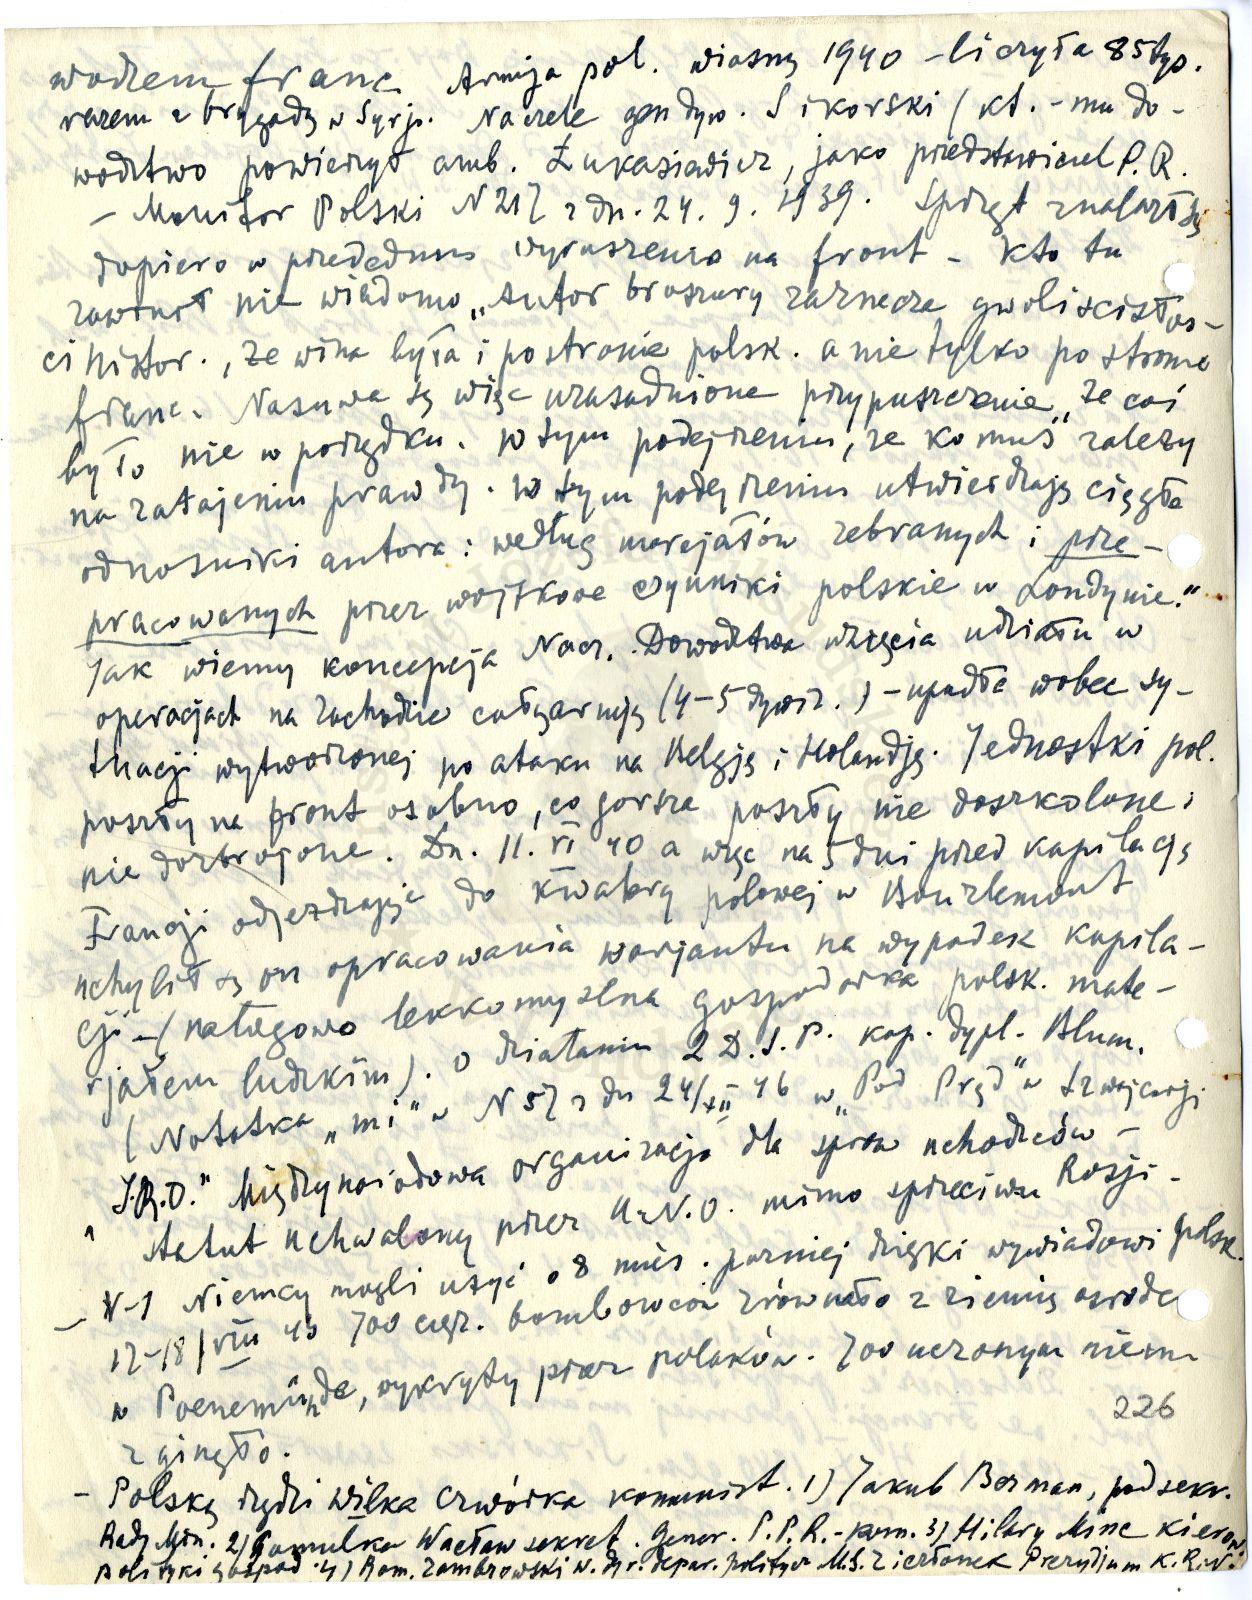 wodzem franc. Armja pol. wiosną 1940 – liczyła 85 tys.
razem z brygadą w Syrji. Na czele gen dyw. Sikorski (kt. – mu do-
wództwo powierzył amb. Łukasiewicz, jako przedstawiciel P.R.
– Monitor Polski N 217 z dn. 24. 9. 1939. Sprzęt znalazł się
dopiero w przededniu wyruszenia na front – kto tu
zawinił nie wiadomo „Autor broszury zaznacza gwoli ścisłoś-
ci histor., że wina była i po stronie polsk. a nie tylko po stronie
franc. Nasuwa się więc uzasadnione przypuszczenie „że coś
było nie w porządku. W tym podejrzeniu, że komuś zależy
na zatajeniu prawdy. W tym podejrzeniu utwierdzają ciągłe
odnośniki autora: według materjałów zebranych i prze-
pracowanych przez wojskowe czynniki polskie w Londynie."
Jak wiemy koncepcja Nacz. Dowództwa wzięcia udziału w
operacjach na zachodzie całą armją (4–5 dywiz.) – upadła wobec sy-
tuacji wytworzonej po ataku na Belgję i Holandję. Jednostki pol.
poszły na front osobno, co gorsza poszły nie doszkolone i
nie dozbrojone. Dn. 11. VI 40 a więc na 5 dni przed kapilacją
Francji odjeżdżając do kwatery polowej w Bourlemont
uchylił się on opracowania warjantu na wypadek kapila-
cji – (nałogowo lekkomyślna gospodarka polsk. mate-
rjałem ludzkim). O działaniu 2 D.S.P. kap. dypl. Blum.
(Notatka „mi" w N 57 z dn 24/XII 46 w „Pod Prąd" w Szwajcarji
„I.R.O." Międzynarodowa organizacja dla spraw uchodźców –
statut uchwalony przez U.N.O. mimo sprzeciwu Rosji –
– V-1 Niemcy mogli użyć o 8 mies. pozniej dzięki wywiadowi polsk.
17–18/VIII 43 700 cięż. bombowców zrównało z ziemią ośrodek
w Peenemünde, wykryty przez polaków. 700 uczonych niem
zginęło.
226
– Polską rządzi wilka czwórka komunist. 1) Jakub Berman, podsekr.
Rady Min. 2) Gomułka Wacław sekret. Gener. P.P.R. – kom. 3) Hilary Minc kierow.
polityki gospod. 4) Rom. Zambrowski w. dyr. depar. polityw M.S. członek Prezydjum K.R.N.